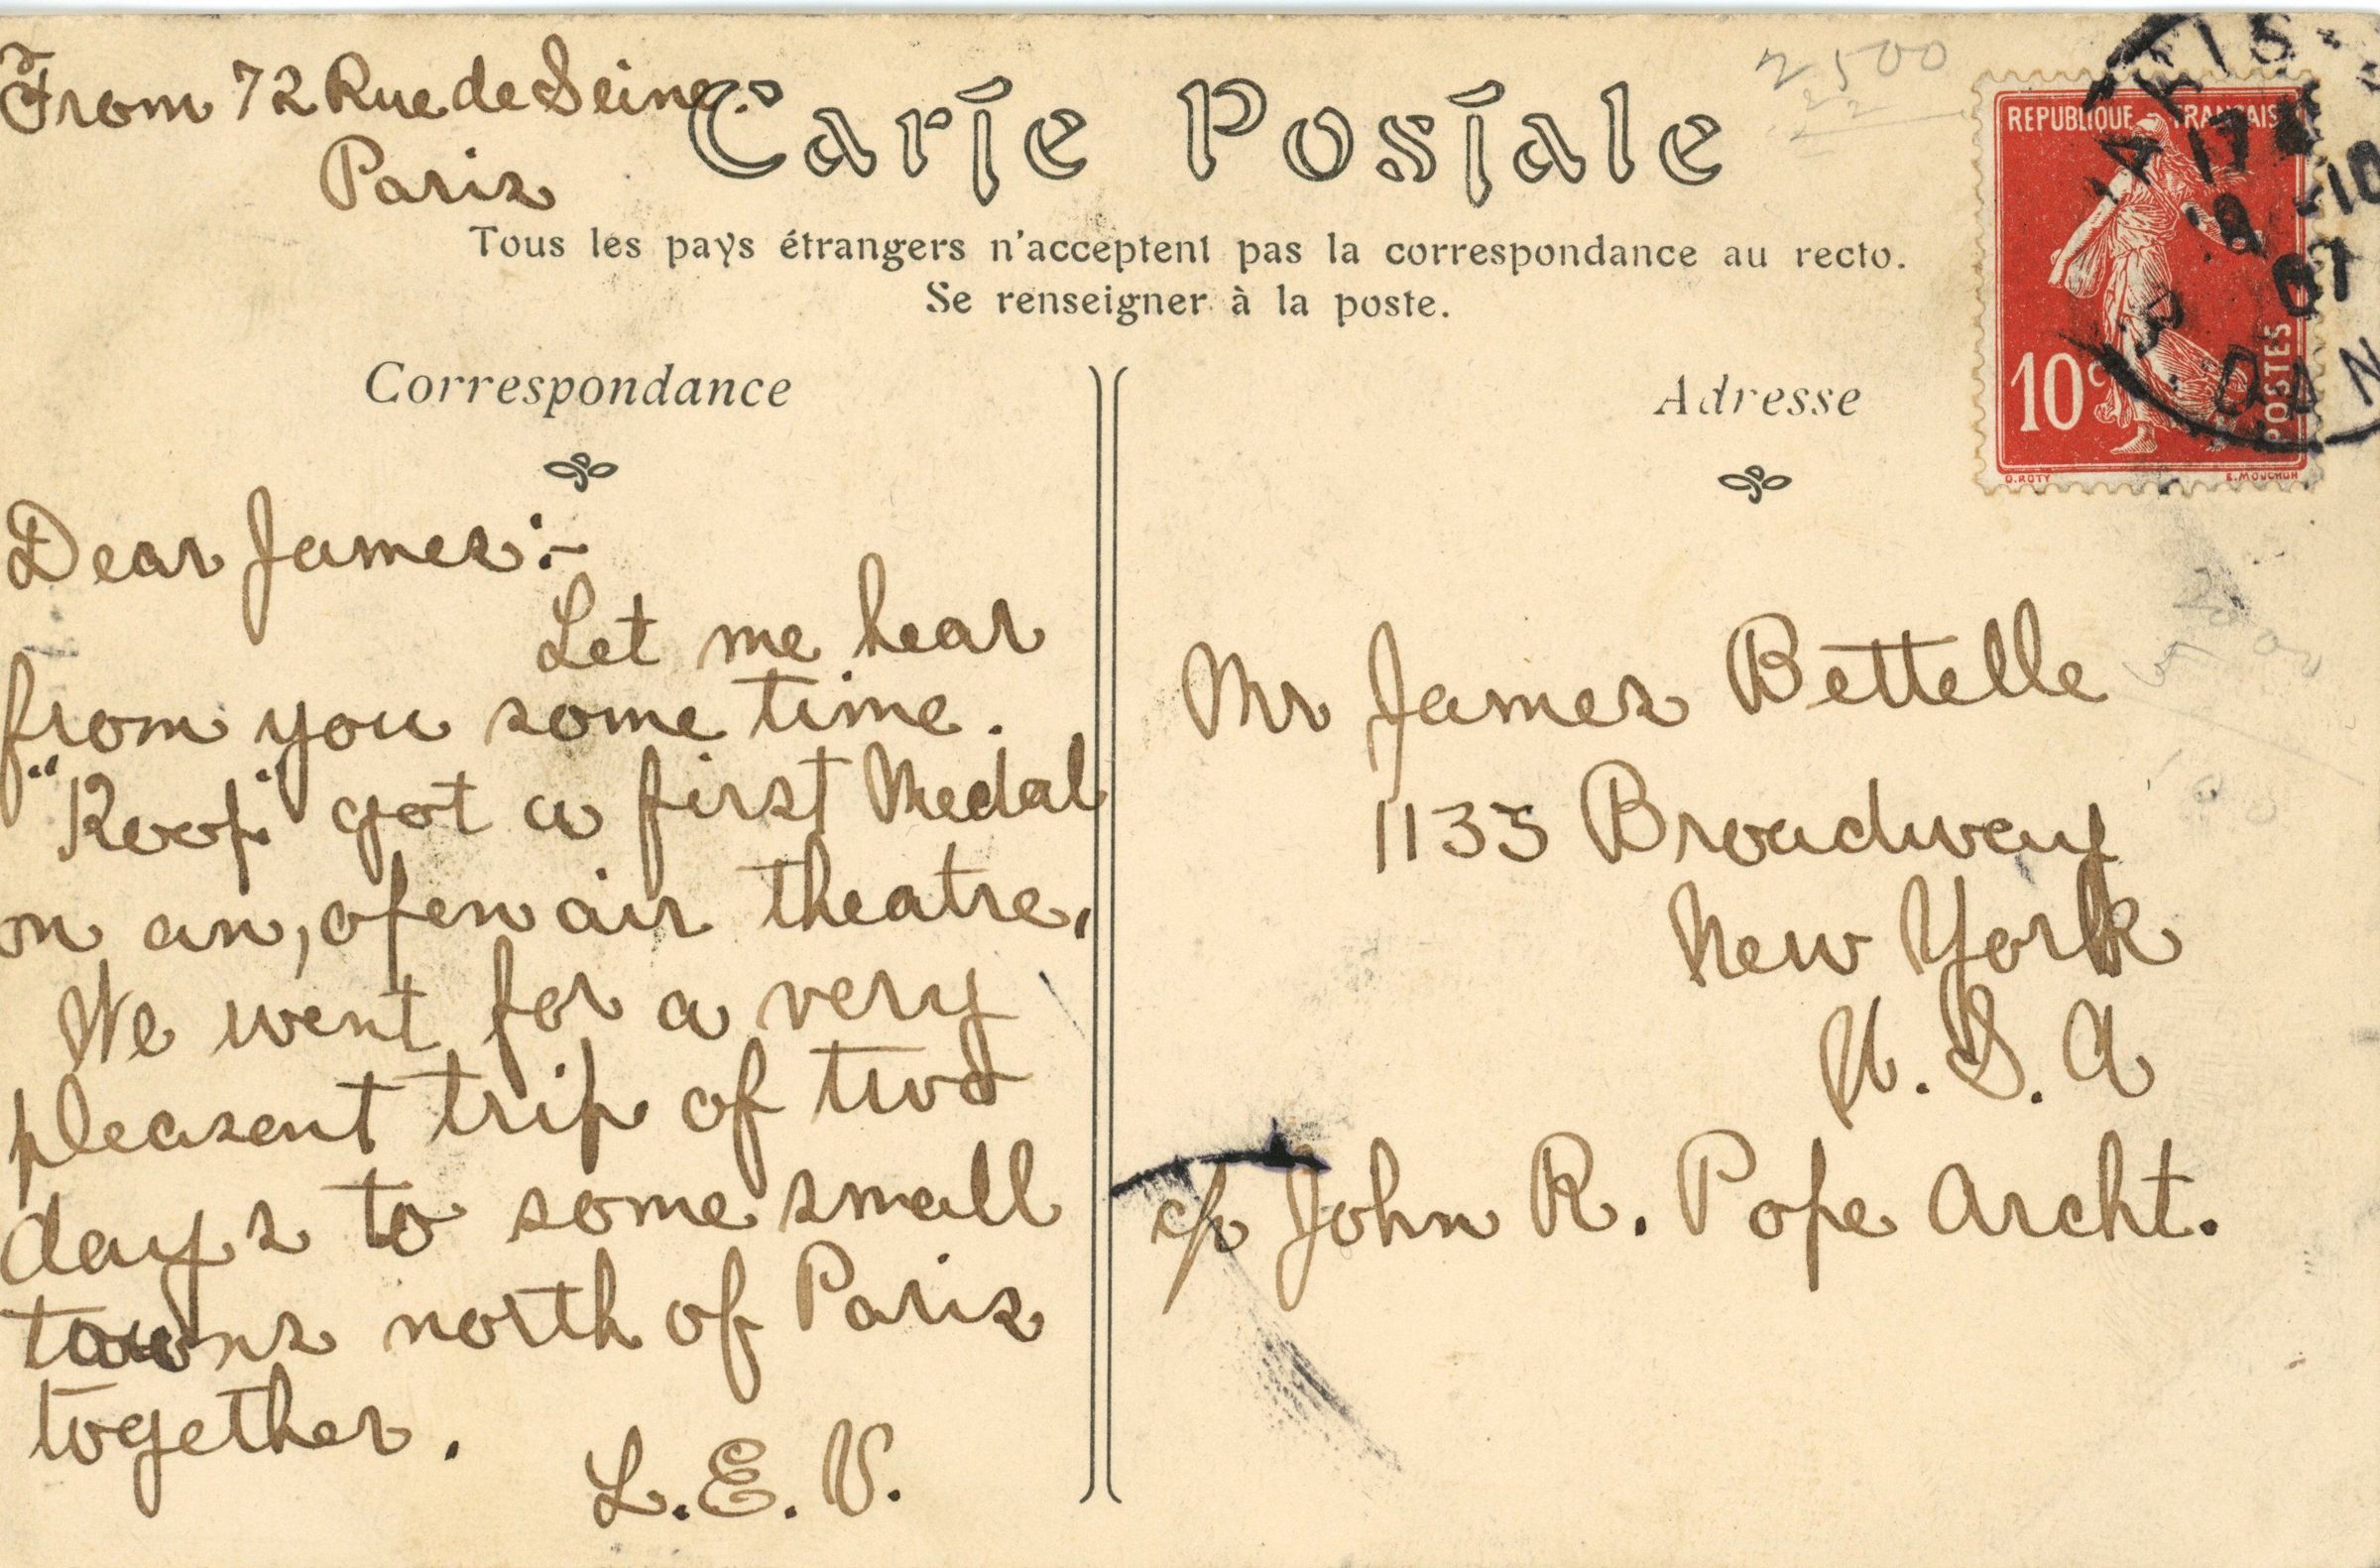 From 72 Rue de Seine.
Paris
Carte Postale
2500
Tous les pays étrangers n'acceptent pas la correspondance au recto.
Se renseigner à la poste.
REPUBLIQUE FRANCAISE
10c
POSTES
O.ROTY
E.MOUCHON
PARIS
17
8 -10
07
DAN
Correspondance
Dear James:-
Let me hear
from you some time.
"Roof" got a first Medal
on an, open air theatre.
We went for a very
pleasent trip of two
days to some small
towns north of Paris
together.
L.E.V.
Adresse
Mr James Bettelle
1133 Broadway
New York
U.S.A
c/o John R. Pope Archt.